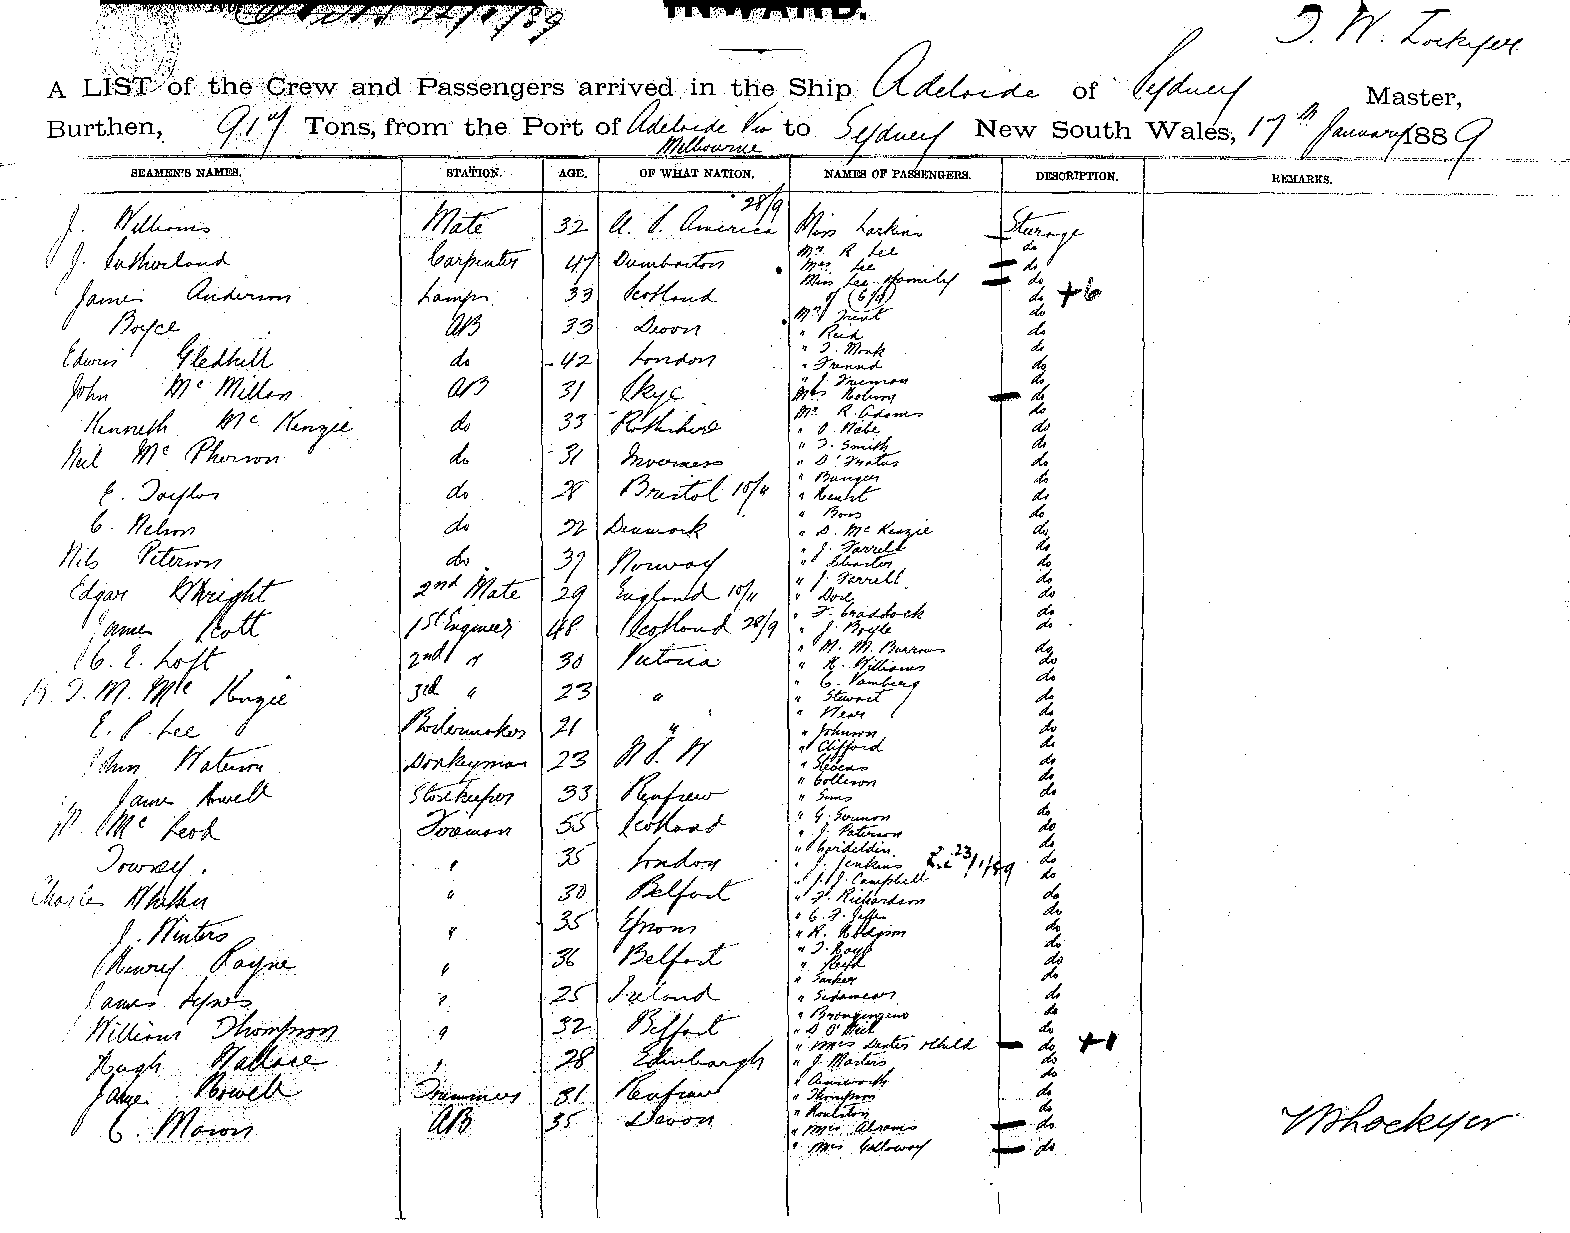 INWARD.
T. W. Lockyer
A LIST of the Crew and Passengers arrived in the Ship Adelaide of Sydney Master,
Burthen, 917 Tons, from the Port of Adelaide Via Melbourne to Sydney New South Wales, 17th January 1889
SEAMEN'S NAMES. STATION. AGE. OF WHAT NATION. NAMES OF PASSENGERS. DESCRIPTION. REMARKS.
J. Williams Mate 32 U. S. America 28/9
J. Sutherland Carpenter 47 Dumbarton
James Anderson Lamps 33 Scotland
Boyce AB 33 Devon
Edwin Gledhill do 42 London
John McMillan AB 31 Skye
Kenneth McKenzie do 33 Rothshire
Neil McPherson do 31 Inverness
E. Taylor do 28 Bristol 10/11
C. Nelson do 22 Denmark
Nils Peterson do 39 Norway
Edgar Wright 2nd Mate 29 England 10/11
James Scott 1st Engineer 48 Scotland 28/9
C. E. Loft 2nd " 30 Victoria
T. M. McKenzie 3rd " 23 "
E. S. Lee Boilermaker 21 "
John Waterson Donkeyman 23 N S W
James Howell Storekeeper 33 Renfrew
McLeod Fireman 55 Scotland
Towsey. " 35 London
Charles Whitker " 30 Belfast
J. Winters " 35
Henry Payne " 36 Belfast
James Lynes " 25 Ireland
William Thompson " 32 Belfast
Hugh Wallace " 28 Edinburgh
James Howell Trimmers 31 Renfrew
C. Mason AB 35 Devon
Miss Larkins Steerage
Mr R Lee do
Mrs Lee do
Miss Lee & family do
of (6) do +6
Mr Trent do
" Reid do
" T. Monk do
" do
" J. Freeman do
Mrs Nelson do
Mr R. Adams do
" do
" T. Smith do
" do
" do
" do
" do
" D. McKenzie do
" J. Farrell do
" do
" J. Farrell do
" do
" F. Craddock do
" J. Boyle do
" M. M. Burrows do
" K. Williams do
" C. Vamberg do
" Stewart do
" Wear do
" Johnson do
" Clifford do
" Stevens do
" Collison do
" Sims do
" G. Gunnon do
" J. Paterson do
" do
" J. Jenkins 23/1/89 do
" J. J. Campbell do
" F. Richardson do
" do
" R. Hodgson do
" do
" do
" do
" do
" do
" D O'Neil do
" Mrs Dexter & Child do +1
" J. Masters do
" Ainsworth do
" Thompson do
" Roulston do
" Mrs Abrams do
" Mrs Galloway do
T W Lockyer